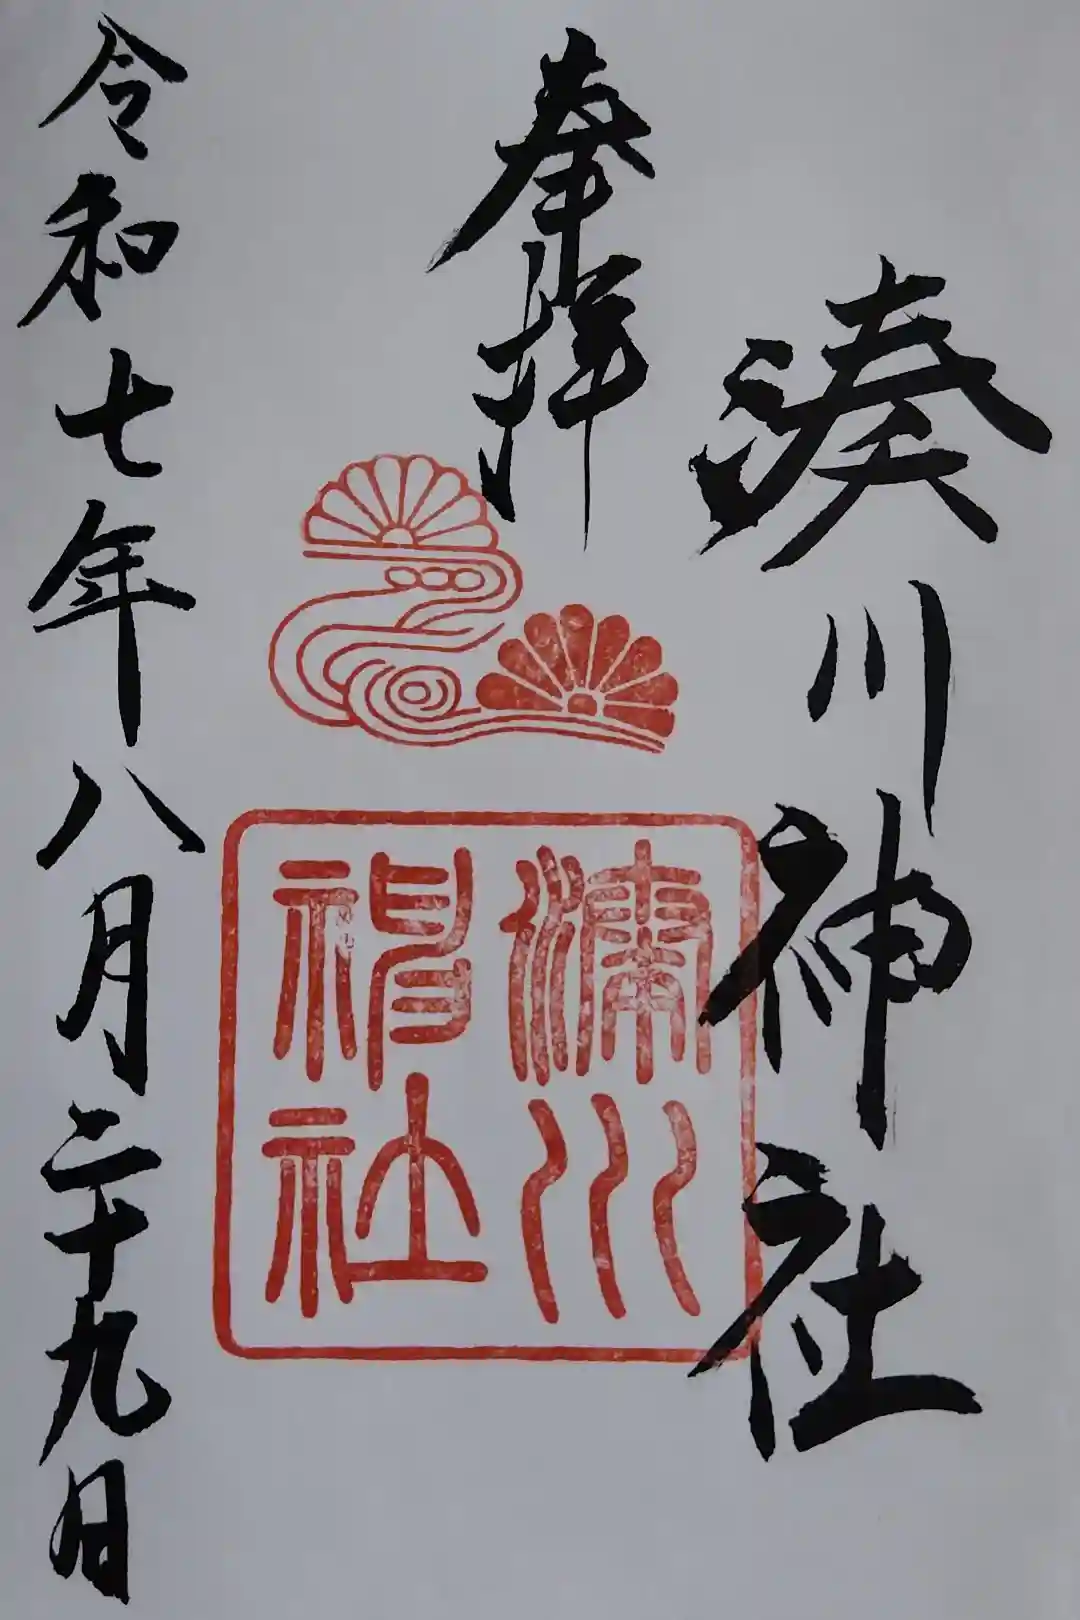 湊川神社
奉拝
湊川
神社
令和七年八月二十九日